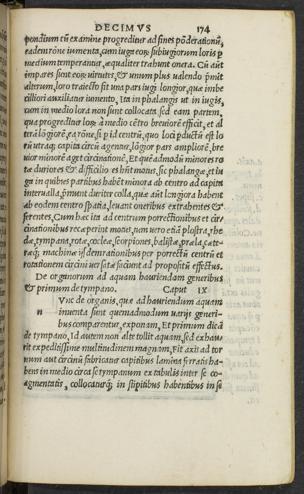 DECIMVS 174
pendium cũ examine progreditur ad fines põderationũ,
eadem rõne iumenta, cum iuga eoꝝ subiugiorum loris p
medium temperantur, æqualiter trahunt onera. Cũ aũt
impares sunt eoꝝ uirtutes, & unum plus ualendo p̃mit
alterum, loro traiecto fit una pars iugi longior, quæ imbe
cilliori auxiliatur iumento, Ita in phalangis ut in iugis,
cum in medio lora non sunt collocata sed eam partem,
qua progreditur lorꝝ à medio cẽtro breuiorẽ efficit, et al
terã lõgiorẽ, ea rõne, si p id centrũ, quo loci pductũ est lo
rũ utraqꝫ capita circũ agentur, lõgior pars ampliorẽ, bre
uior minorẽ aget circinationẽ, Et quẽadmodũ minores ro
tæ duriores & difficilio es hñt motus, sic phalangæ, et iu
ga in quibus partibus habẽt minora ab centro ad capita
interualla, p̃munt duriter colla, quæ aũt longiora habent
ab eodem centro spatia, leuant oneribus extrahentes &
ferentes, Cum hæc ita ad centrum porrectionibus et cir
cinationibus recæperint motus, tum uero etiã plostra, rhe
dæ, tympana, rotæ, cocleæ, scorpiones, balistæ, præla, cæte-
ræqꝫ machinæ ijsdem rationibus per porrectũ centrũ et
rotationem circini uersatæ faciunt ad propositũ effectus.
De organorum ad aquam hauriendam generibus
& primum de tympano. Caput IX
n Vnc de organis, quæ ad hauriendum aquam
inuenta sunt quemadmodum uarijs generi-
bus comparentur, exponam, Et primum dicã
de tympano, Id autem non alte tollit aquam, sed exhau
rit expeditissime multitudinem magnam, Fit axis ad tor
num aut circinũ fabricatus capitibus lamina ferratis ha-
bens in medio circa se tympanum ex tabulis inter se co-
agmentatis, collocaturqꝫ in stipitibus habentibus in se